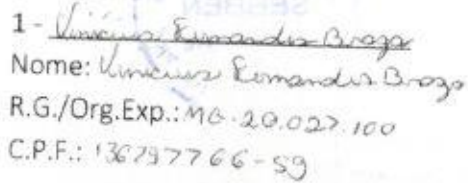 1 - Vinicius Fernandes Braga
Nome: Vinicius Fernandes Braga
R.G./Org.Exp.: MG.20.027.100
C.P.F.: 136797766-59